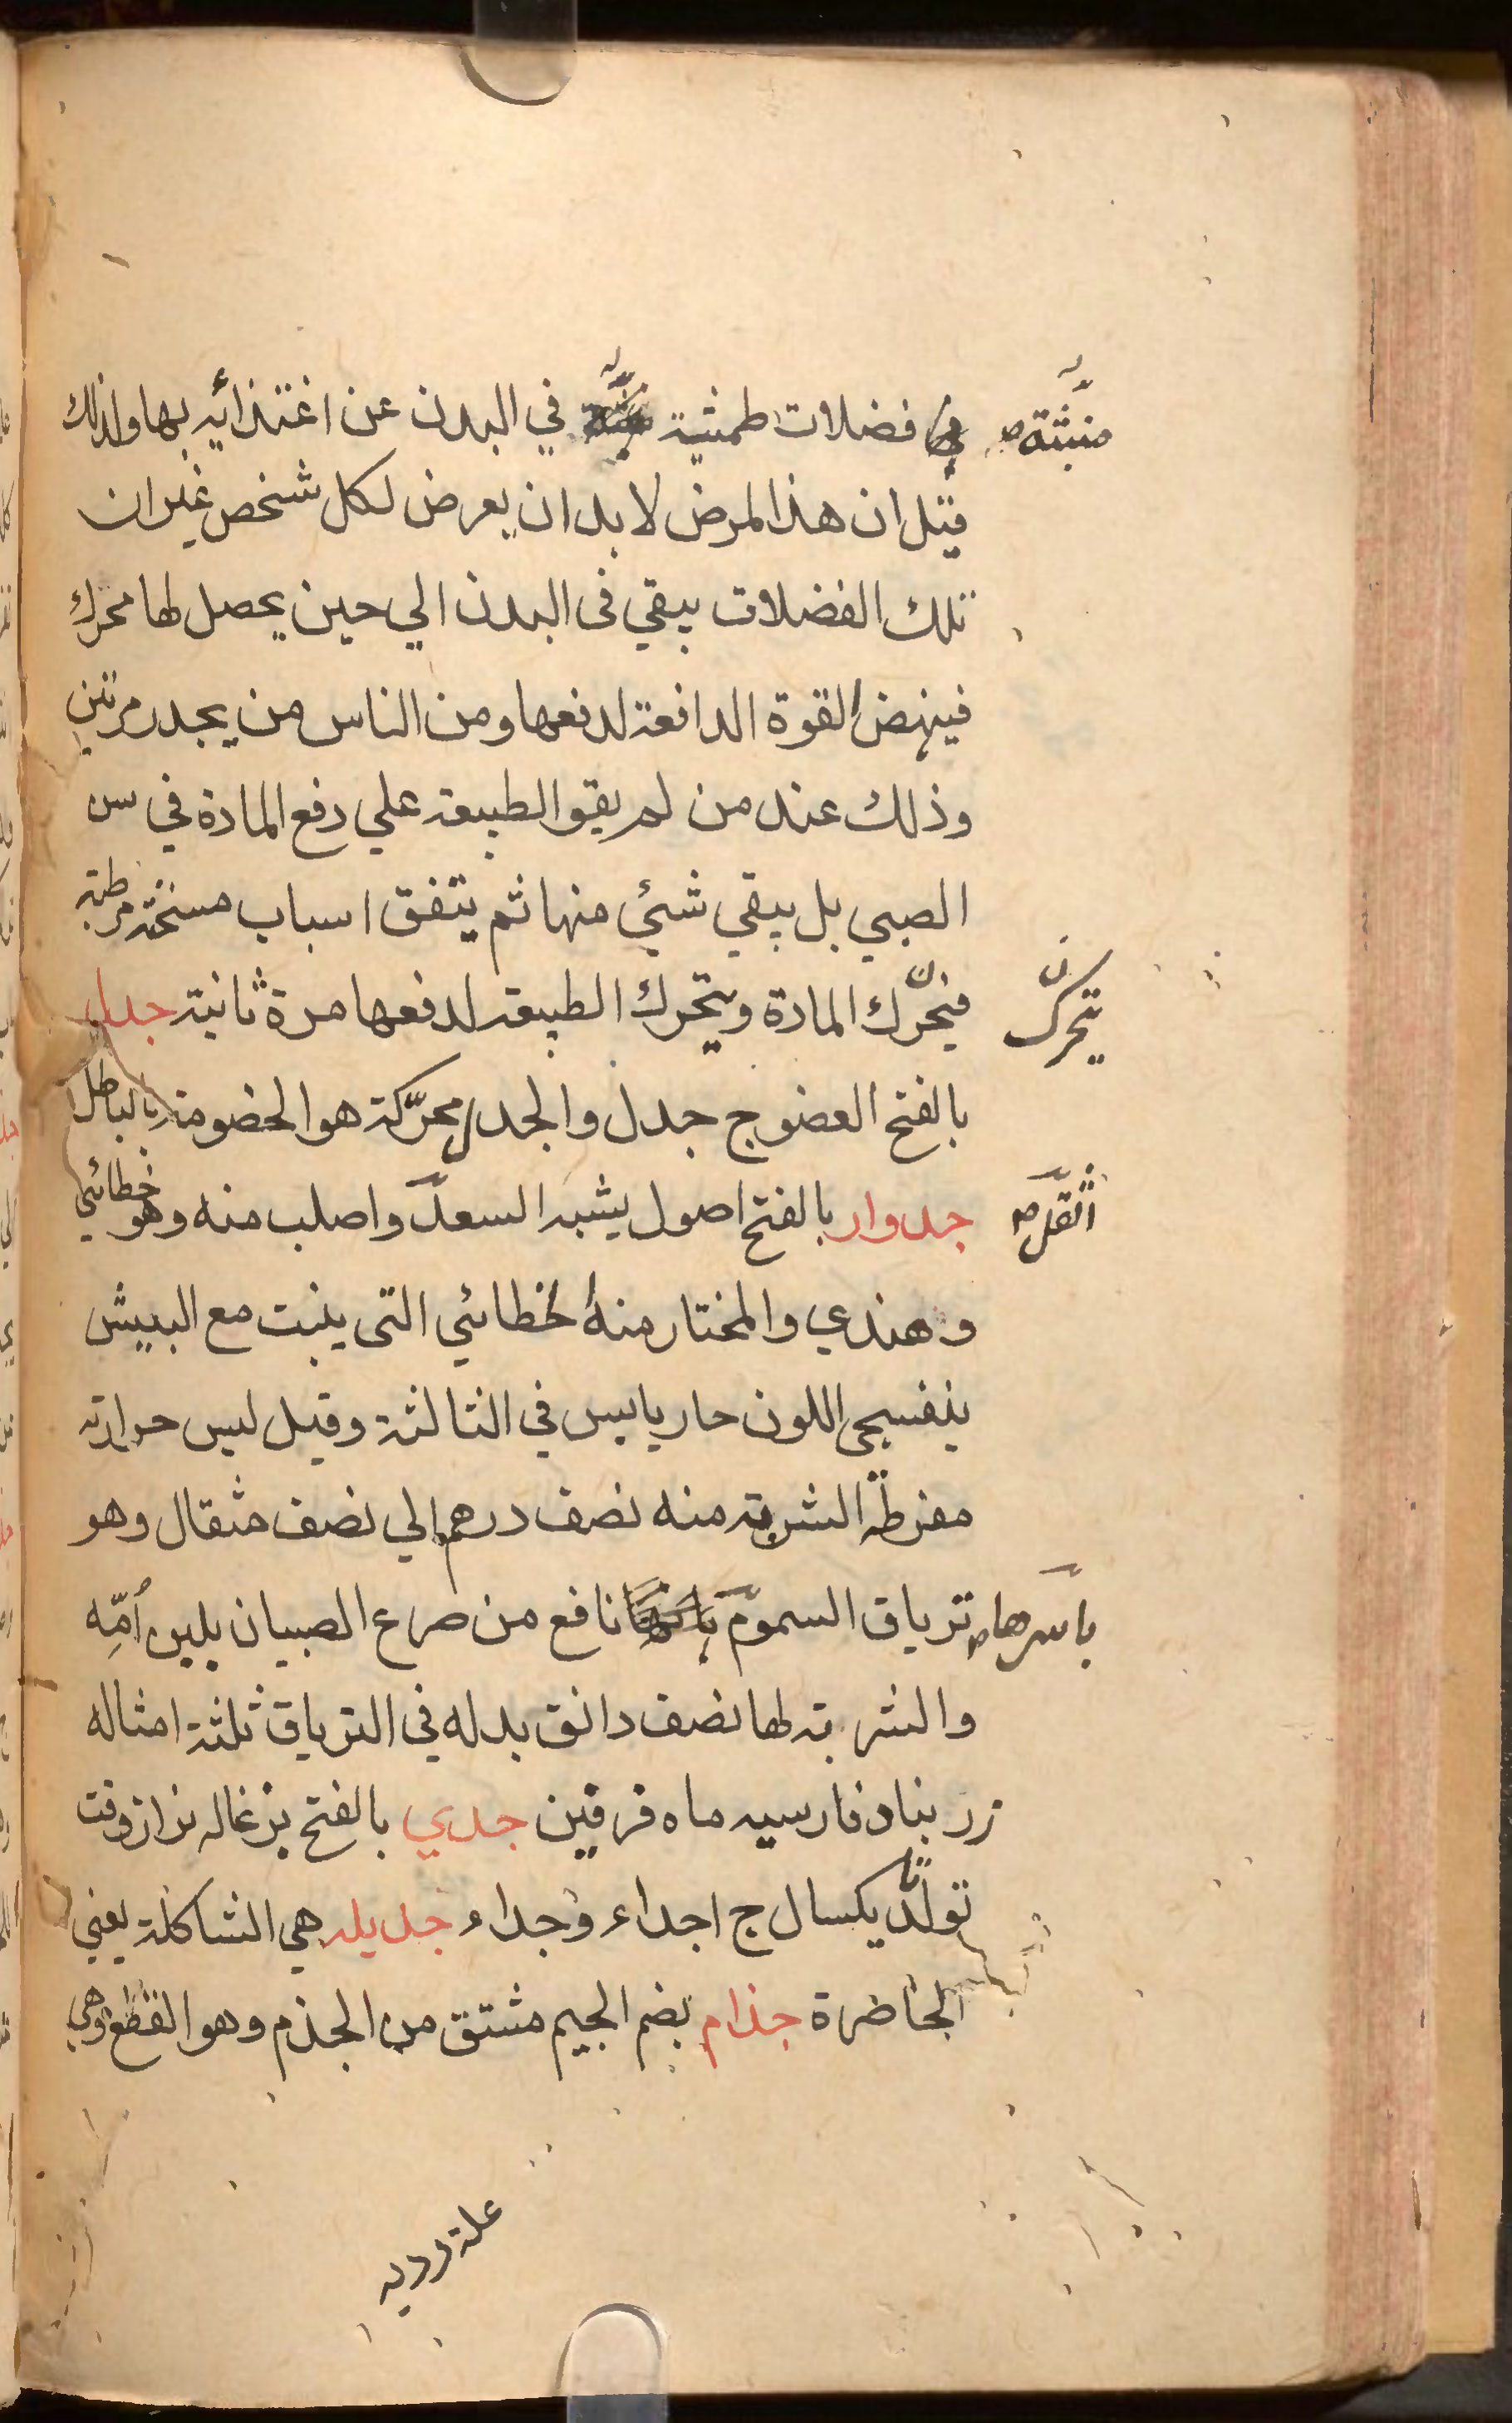 في فضلات طمثية في البدن عن اغتذائه بها ولذلك
منبثة صح
قيل ان هذا المرض لا بد ان يعرض لكل شخص غير ان
تلك الفضلات يبقي فى البدن الي حين يحصل لها محرك
فينهض القوة الدافعة لدفعها ومن الناس من يجدر مرتين
وذلك عند من لم يقو الطبيعة علي دفع المادة في سن
الصبي بل يبقي شئ منها ثم يتفق اسباب مسخنة مرطبة
فيحرّك المادة ويتحرك الطبيعة لدفعها مرة ثانية جدل
يتحرّك
بالفتح العضو ج جدل والجدل محرّكة هو الخصومة بالباطل
جدوار بالفتح اصول يشبه السعد واصلب منه وهو خطائي
اثقل صح
وهندي والمختار منه الخطائي التى ينبت مع البيش
بنفسجى اللون حار يابس في الثالثة وقيل ليس حرارته
مفرطة الشربة منه نصف درهم الي نصف مثقال وهو
ترياق السموم نافع من صرع الصبيان بلبن اُمّه
بأسرها صح
والشربة لها نصف دانق بدله في الترياق ثلثة امثاله
زرنباد فارسيه ماه فرفين جدي بالفتح بزغاله نر از وقت
تولّد يكسال ج اجداء وجداء جديله هي الشاكلة يعني
الحاضرة جذام بضم الجيم مشتق من الجذم وهو القطع وهي
علة رديه